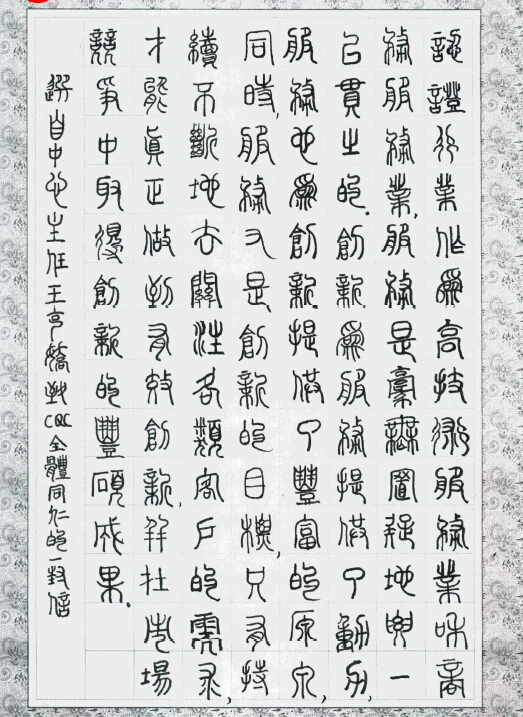 認證行業作爲高技術服務業和商
務服務業,服務是毫無置疑地與一
以貫之的.創新爲服務提供了動力,
服務也爲創新.提供了豐富的源泉,
同時,服務又是創新的目標,只有持
續不斷地去關注各類客戶的需求,
才能真正做到有效創新,并在市場
競爭中取得創新的豐碩成果.
選自中心主任王克嬌致CQC全體同仁的一封信